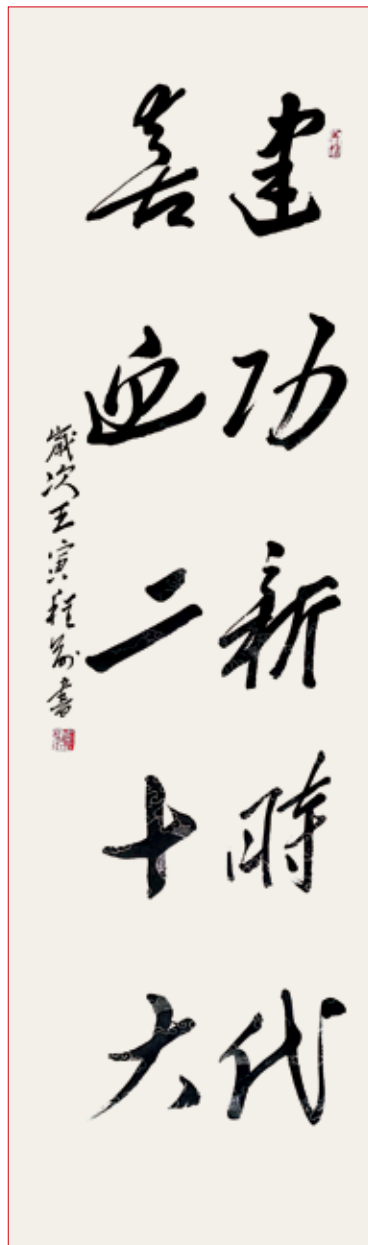 建功新時代
喜迎二十大
歲次壬寅程前書